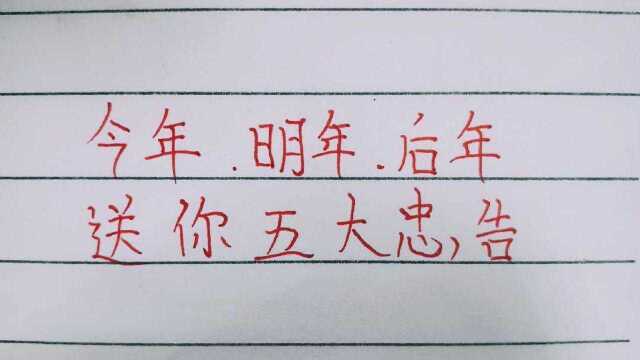 今年.明年.后年
送你五大忠告